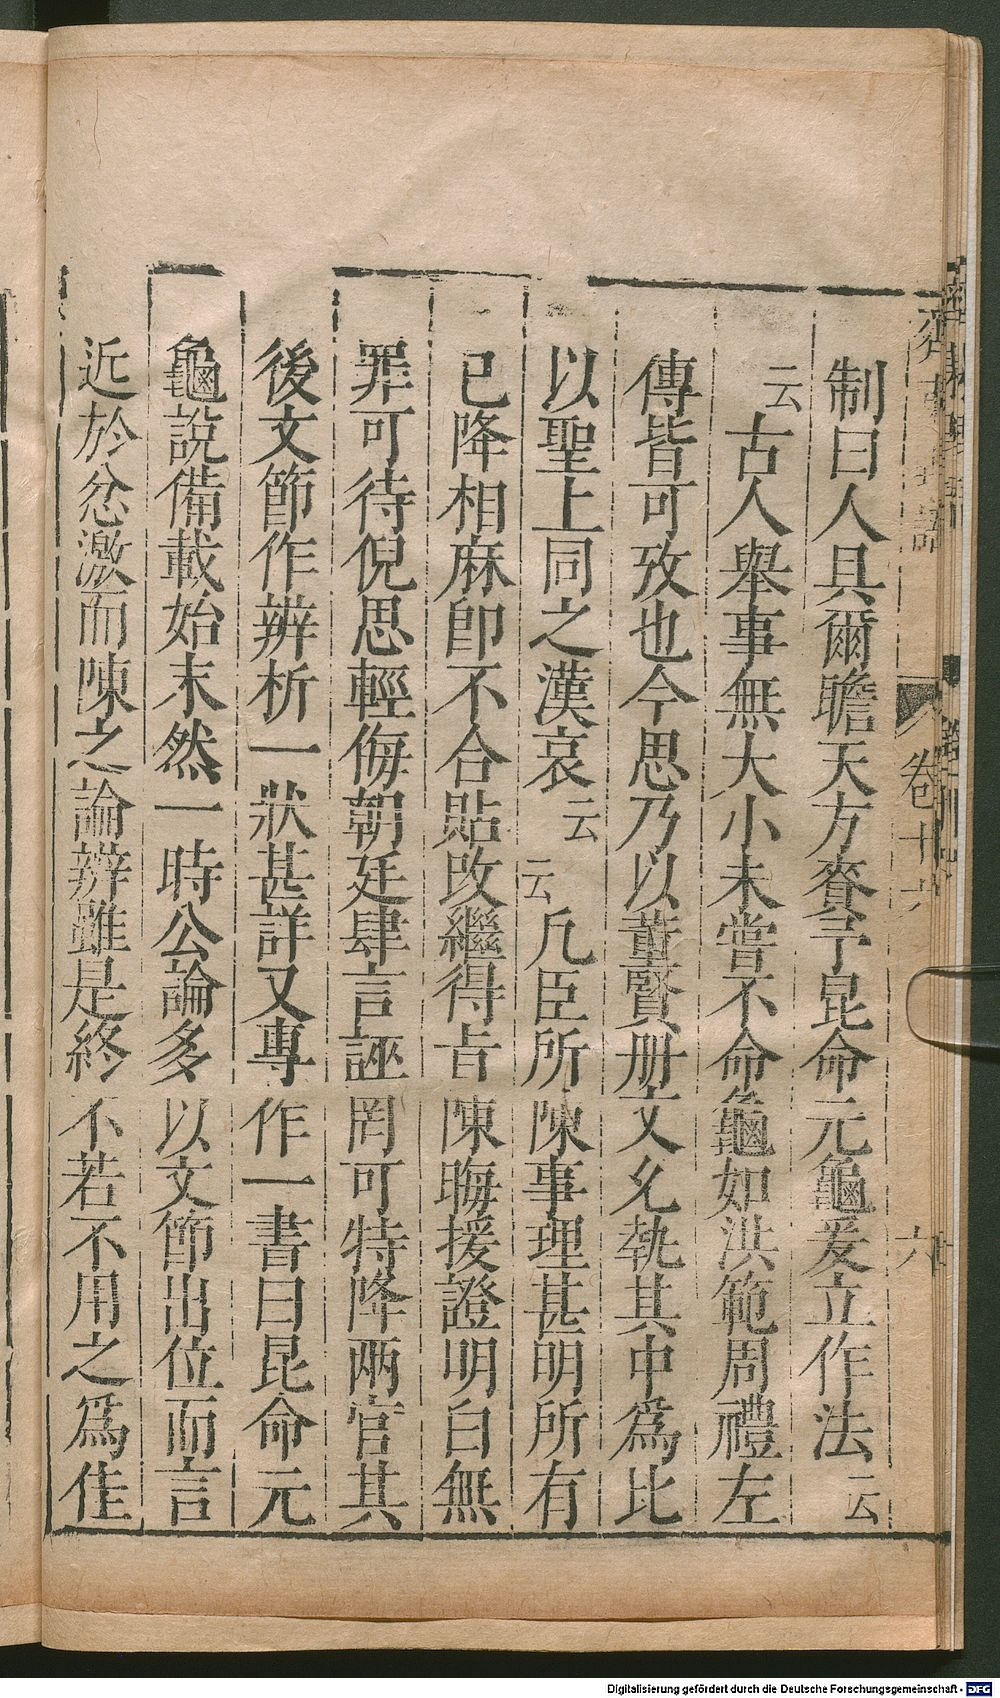 制曰人具爾瞻天方賚予昆命元龜爰立作法云
云古人舉事無大小未嘗不命龜如洪範周禮左
傳皆可攷也今思乃以董賢册文允執其中為比
以聖上同之漢哀云云凡臣所陳事理甚明所有
已降相麻卽不合貼改繼得旨陳晦援證明白無
罪可待倪思輕侮朝廷肆言誣罔可特降兩官其
後文節作辨析一狀甚詳又專作一書曰昆命元
龜說備載始末然一時公論多以文節出位而言
近於忿激而陳之論辨雖是終不若不用之為佳
齊東野語
卷十六
六
Digitalisierung gefördert durch die Deutsche Forschungsgemeinschaft - DFG